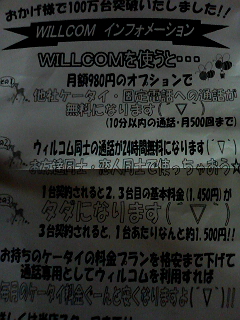 おかげ様で100万台突破いたしました!!
WILLCOM インフォメーション
WILLCOMを使うと・・・
月額980円のオプションで
他社ケータイ・固定電話への通話が
無料になります(゜▽゜)
(10分以内の通話・月500回まで)
ウィルコム同士の通話が24時間無料になります(゜▽゜)
友達同士・恋人同士で使っちゃおう☆
1台契約されると2、3台目の基本料金(1,450円)が
タダになります(゜▽゜)
3台契約されると、1台あたりなんと約1,500円!!
お持ちのケータイの料金プランを格安まで下げて
通話専用としてウィルコムを利用すれば
毎月のケータイ料金ぐーんと安くなりますよ(゜▽゜)!!